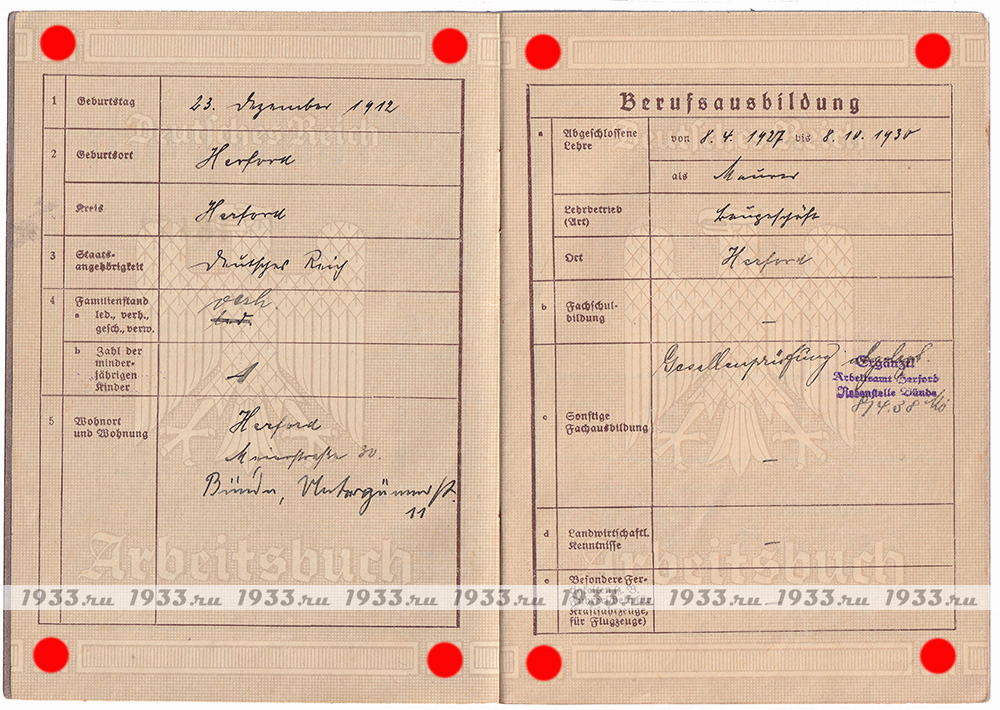 1 Geburtstag 23. Dezember 1912
2 Geburtsort Herford
Kreis Herford
3 Staats-
angehörigkeit Deutsches Reich
4 Familienstand verh.
a led., verh., led.
gesch., verw.
b Zahl der
minder-
jährigen 1
Kinder
5 Wohnort Herford
und Wohnung
Meierstraße 30.
Bünde,
11
Arbeitsbuch
Deutsches Reich
Berufsausbildung
a Abgeschlossene von 8.4.1927 bis 8.10.1930
Lehre
als Maurer
Lehrbetrieb Baugeschäft
(Art)
Ort Herford
b Fachschul-
bildung –
Gesellenprüfung abgelegt.
Ergänzt
Arbeitsamt Herford
Nebenstelle Bünde
8/4.38
c Sonstige
Fachausbildung
–
d Landwirtschaftl.
Kenntnisse –
e Besondere Fer-
Kraftfahrzeuge,
für Flugzeuge)
Arbeitsbuch
Deutsches Reich
1933.ru 1933.ru 1933.ru 1933.ru 1933.ru 1933.ru 1933.ru 1933.ru 1933.ru